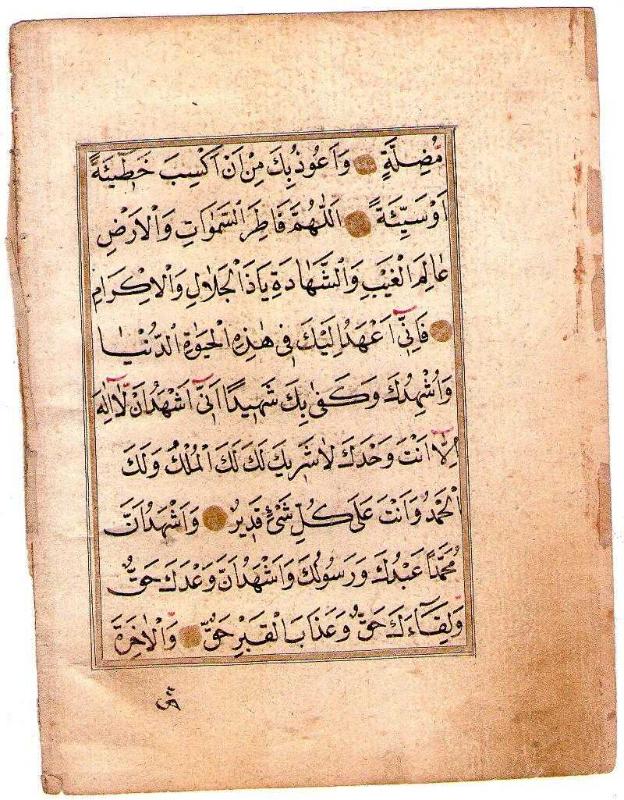 مُضِلَّةٍ وَاَعُوذُ بِكَ مِنْ اَنْ اَكْسِبَ خَطٓيئَةً
اَوْ سَيِّئَةً اَللّٰهُمَّ فَاطِرَ السَّمٰوَاتِ وَالْاَرْضِ
عَالِمَ الْغَيْبِ وَالشَّهَادَةِ يَاذَا الْجَلَالِ وَالْاِكْرَامِ
فَاِنّٓى اَعْهَدُ اِلَيْكَ فِى هٰذِهِ الْحَيٰوةِ الدُّنْيَا
وَاُشْهِدُكَ وَكَفٰى بِكَ شَهِيدًا اَنّٓى اَشْهَدُ اَنْ لَٓا اِلٰهَ
اِلَّٓا اَنْتَ وَحْدَكَ لَا شَرِيكَ لَكَ لَكَ الْمُلْكُ وَلَكَ
الْحَمْدُ وَاَنْتَ عَلٰى كُلِّ شَىْءٍ قَدِيرٌ وَاَشْهَدُ اَنَّ
مُحَمَّدًا عَبْدُكَ وَرَسُولُكَ وَاَشْهَدُ اَنَّ وَعْدَكَ حَقٌّ
وَلِقَٓاءَكَ حَقٌّ وَعَذَابَ الْقَبْرِ حَقٌّ وَالْاٰخِرَةَ